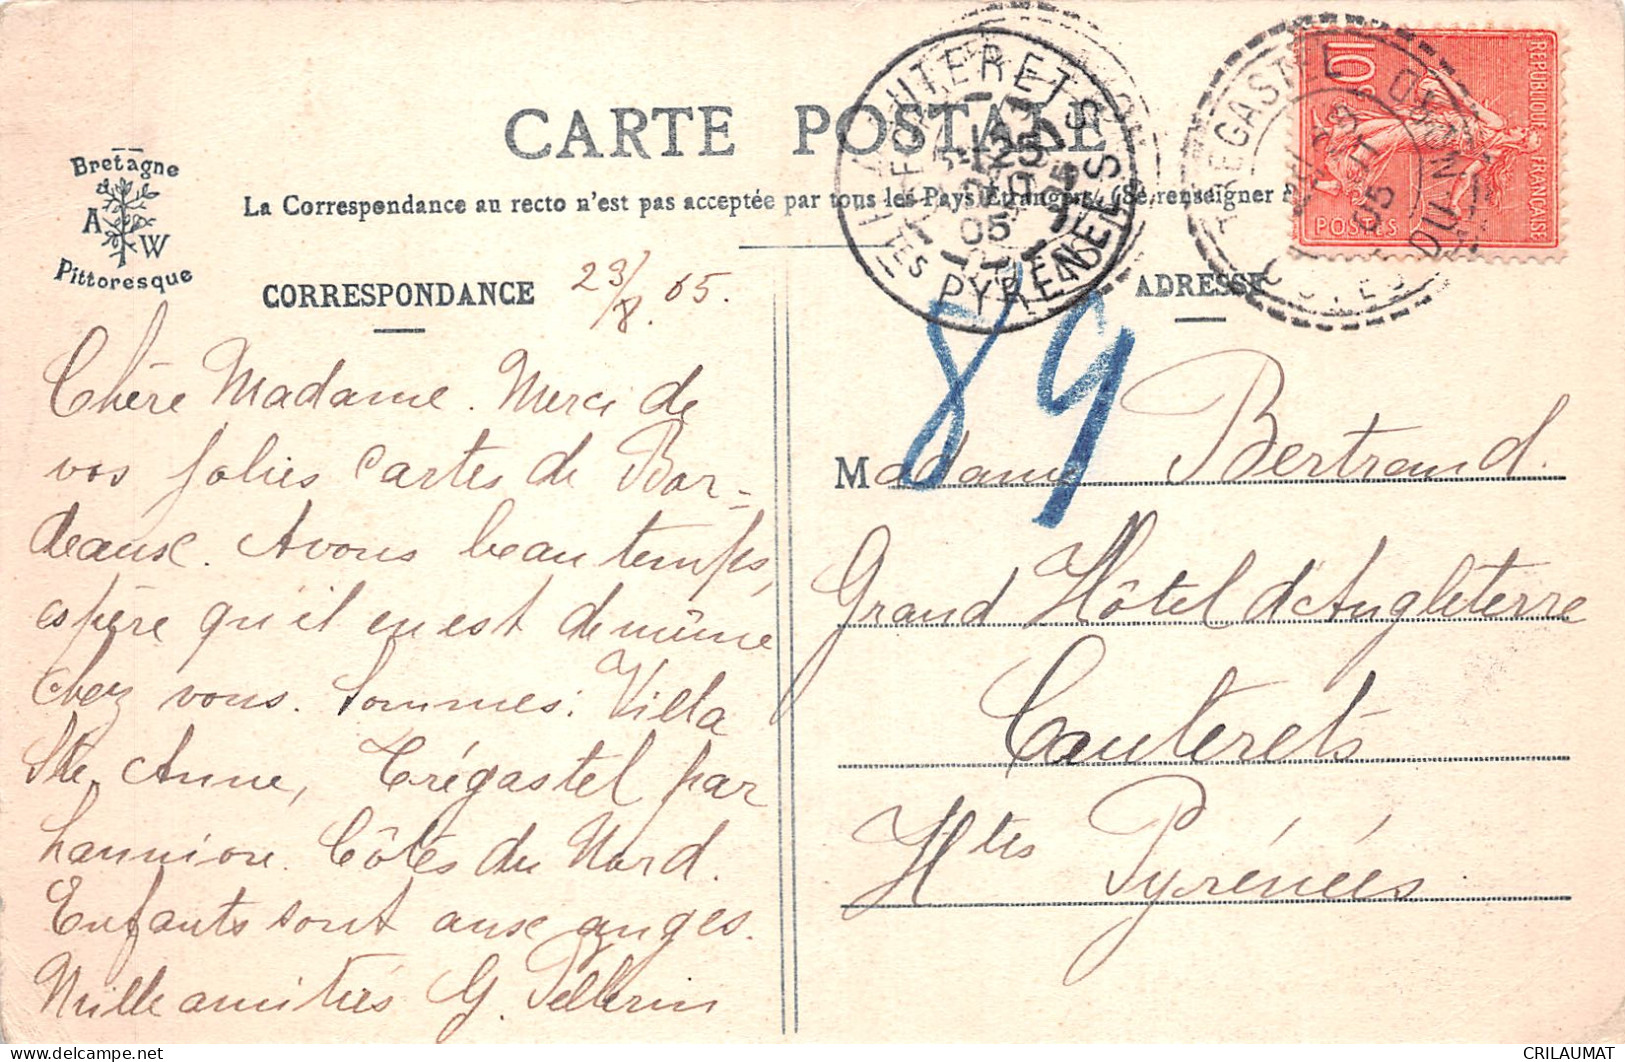 CARTE POSTALE
Bretagne
A W
Pittoresque
La Correspondance au recto n'est pas acceptée par tous les Pays Etrangers. (Se renseigner
CORRESPONDANCE
29/8.05.
Chère Madame. Merci de
vos jolies cartes de Bor-
deaux. Avons beau temps,
espère qu'il en est de même
chez vous. Sommes: Villa
Ste Anne, Trégastel par
Lannion. Côtes du Nord.
Enfants sont aux anges.
Mille amitiés G. Pellerin
CAUTERETS
05
HTES PYRENEES
89
ADRESSE
Madame Bertrand.
Grand Hôtel d'Angleterre
Cauterets
Htes Pyrénées.
REPUBLIQUE FRANCAISE
10c
POSTES
TREGASTEL
05
COTES DU NORD
CRILAUMAT